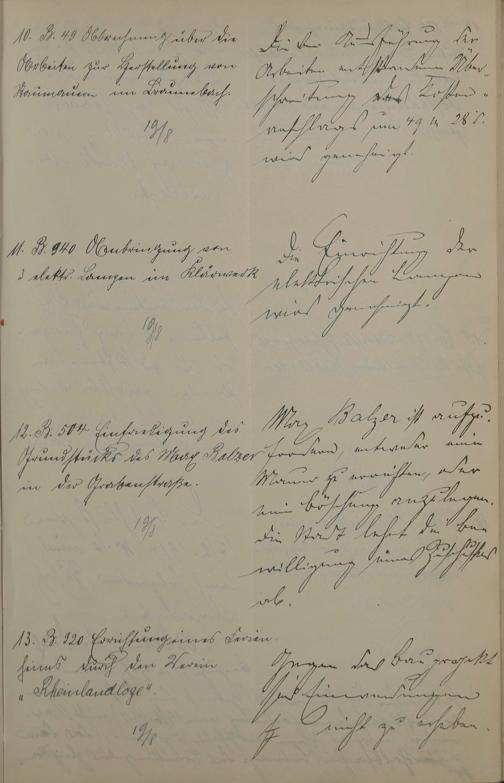 10. B. 49 Abrechnung über die
Arbeiten zur Herstellung von
Staumauern im Braunebach.
19/8
Die bei Ausführung der
Arbeiten entstandene Über-
schreitung des Kosten-
anschlags um 49 M 28 S.
wird genehmigt.
11. B. 940 Anbringung von
3 elektr. Lampen im Klärwerk
19/8
Die Einrichtung der
elektrischen Lampen
wird genehmigt.
12. B. 504 Einfriedigung des
Grundstücks des Max Balzer
in der Grabenstraße.
19/8
Max Balzer ist aufzu-
fordern, entweder eine
Mauer zu errichten, oder
eine Böschung anzulegen.
Die Stadt lehnt die Be-
willigung eines Zuschusses
ab.
13. B. 920 Errichtung eines Ferien-
heims durch den Verein
"Rheinlandloge".
19/8
Gegen das Bauprojekt
sind Einwendungen
nicht zu erheben.